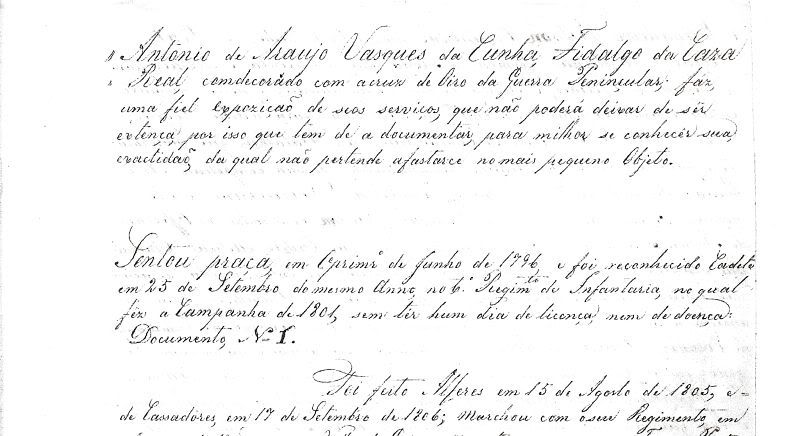 Antonio de Araujo Vasques da Cunha, Fidalgo da Caza
Real, comdecorado com a cruz de Oiro da Guerra Penincular; faz,
uma fiel expozição de seos serviços, que não poderá deixar de sêr
extença, por isso que tem de a documentar, para milhor se conhecêr sua
exactidaõ, da qual não pertende afastarce no mais pequeno Objeto.
Sentou praça, em o primr.º de Junho de 1796, e foi reconhecido Cadete
em 25 de Setembro do mesmo Anno, no 6.º Regim.to de Infantaria, no qual
fêz a Campanha de 1801, sem têr hum dia de licença, nem de doença:
Documento, Nº 1.
Foi feito Alferes em 15 de Agosto de 1805, e
de Cassadores, em 17 de Setembro de 1806; Marchou com o seu Regimento, em